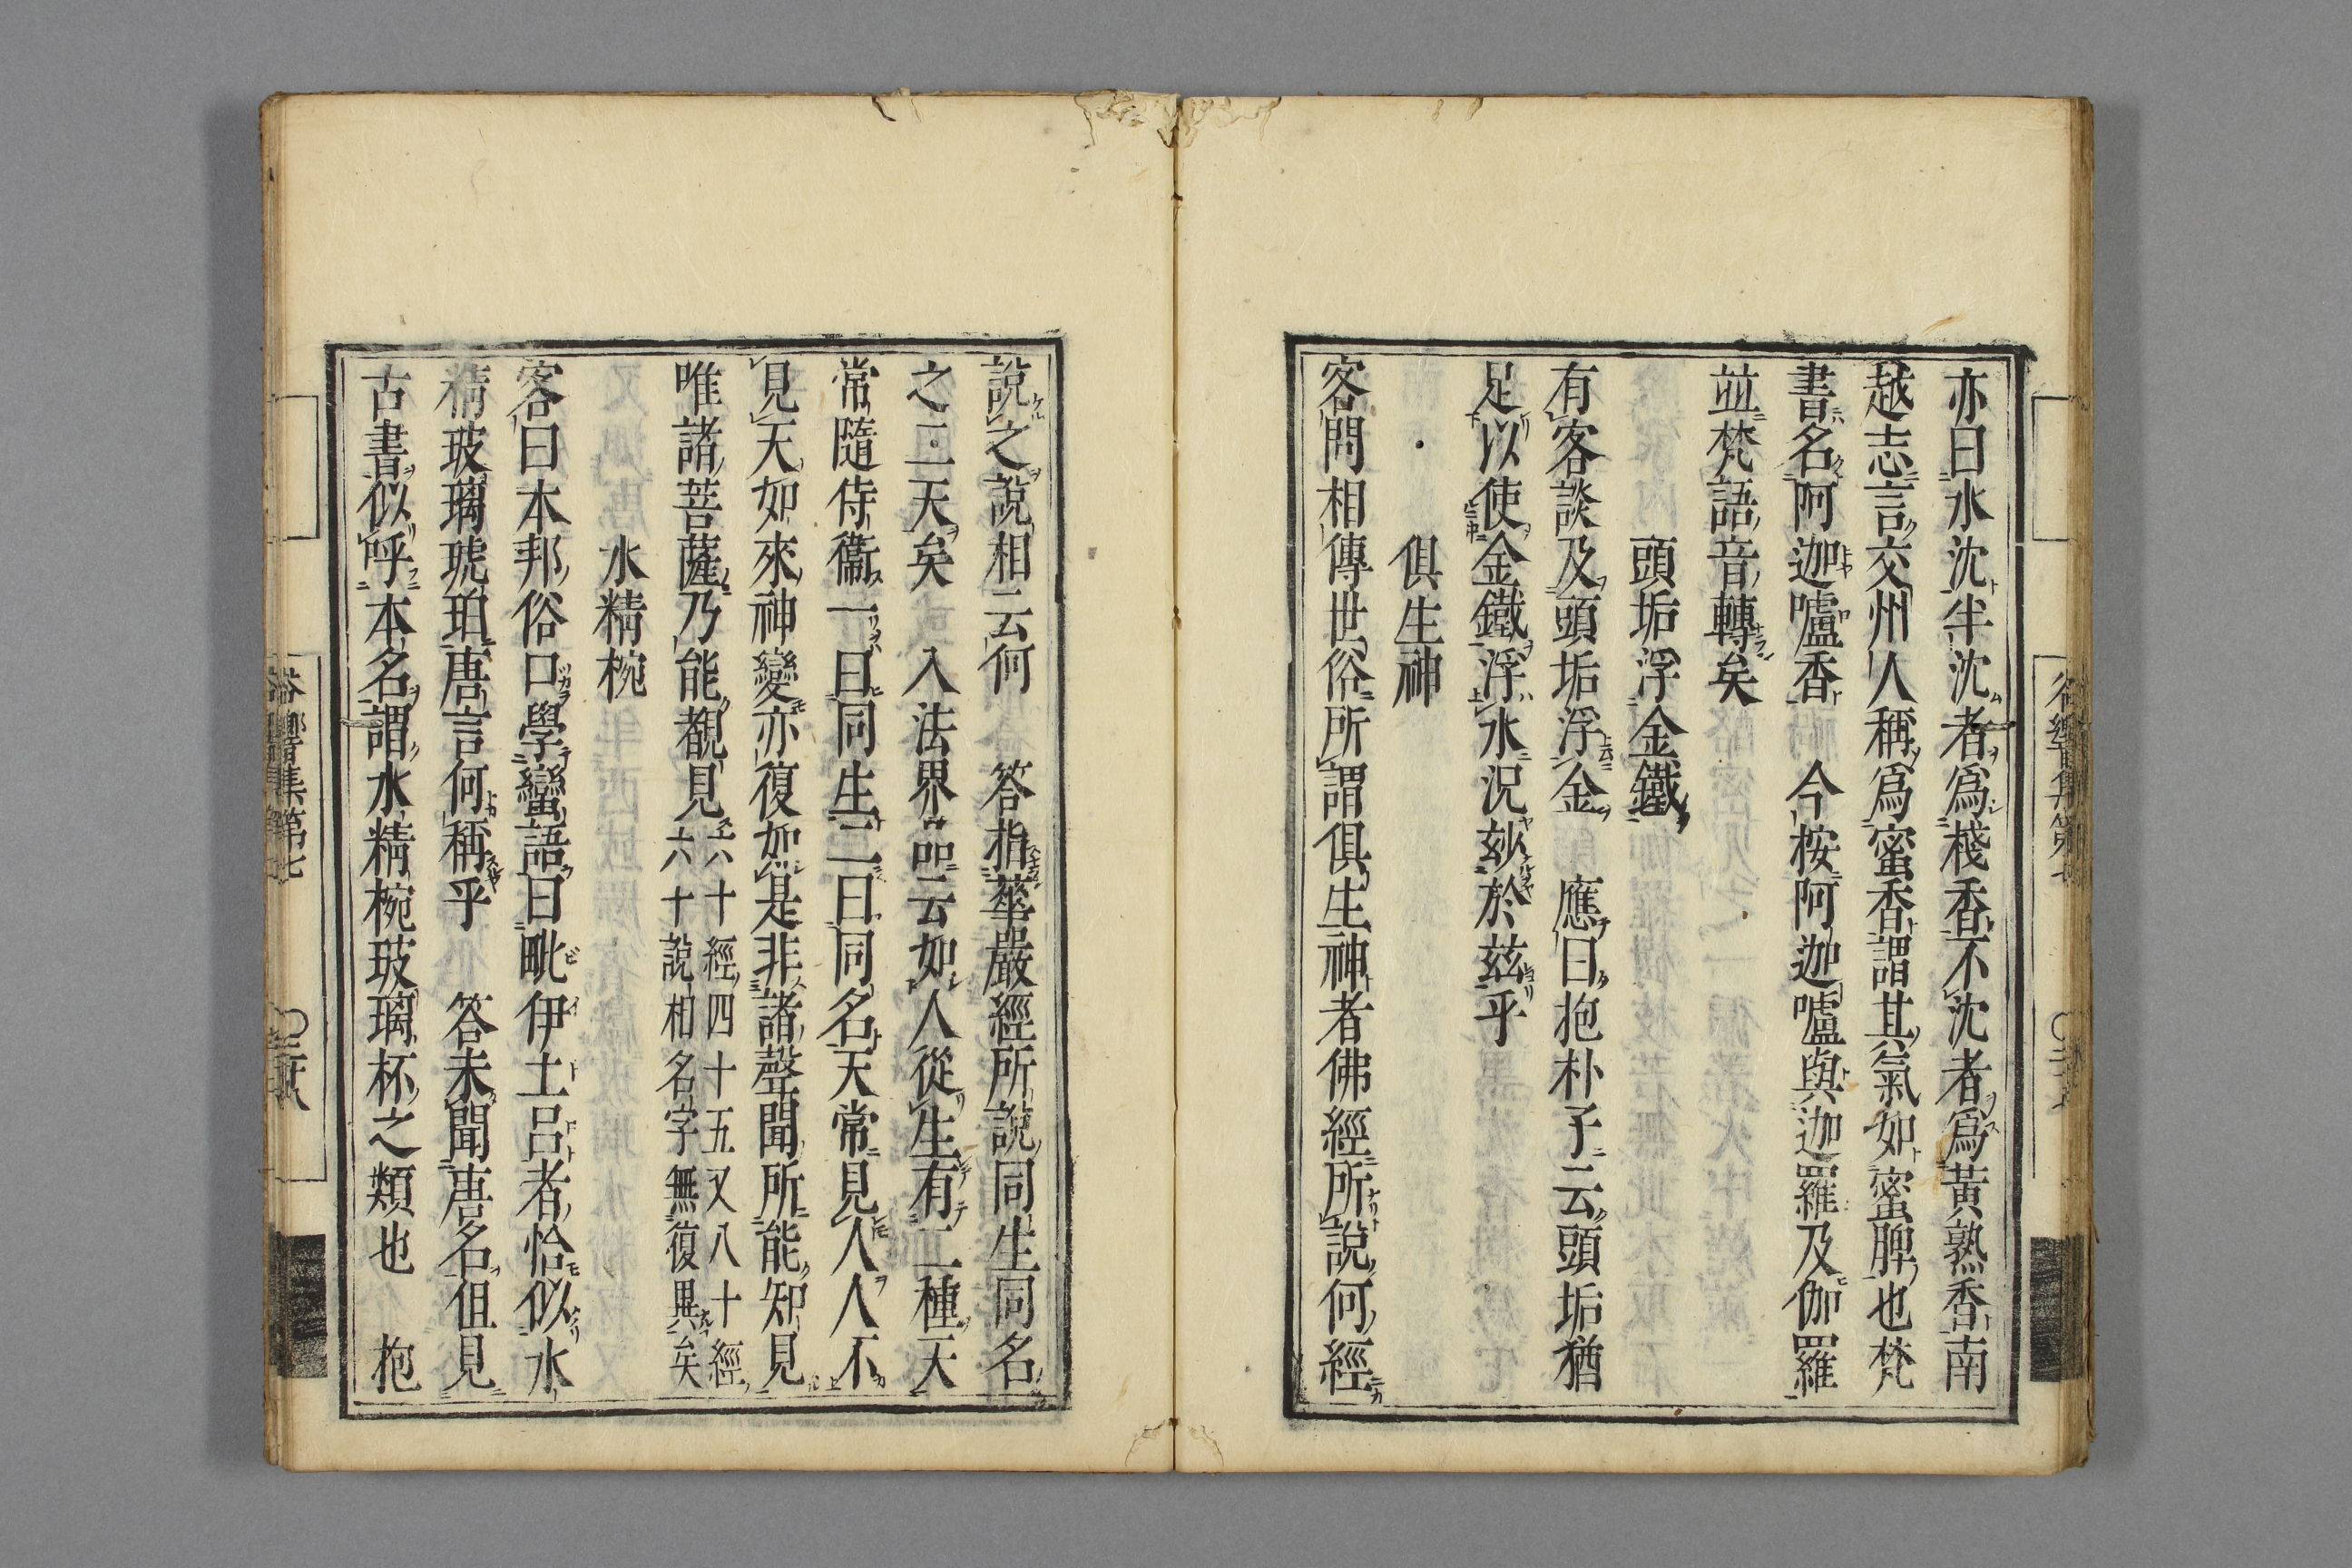 亦曰水沈半沈者爲棧香不沈者爲黃熟香南
越志言交州人稱爲蜜香謂其氣如蜜脾也梵
書名阿迦嚧香 今按阿迦嚧與迦羅及伽羅
並梵語音轉矣
頭垢浮金鐵
有客談及頭垢浮金 應曰抱朴子云頭垢猶
足以使金鐵浮水況玅於茲乎
俱生神
客問相傳世俗所謂俱生神者佛經所說何經
說之說相云何 答指華嚴經所說同生同名
之二天矣 入法界品云如人從生有二種天
常隨侍衞一曰同生二曰同名天常見人人不
見天如來神變亦復如是非諸聲聞所能知見
唯諸菩薩乃能覩見
六十經四十五又八十經
六十說相名字無復異矣
水精椀
客曰本邦俗口學蠻語曰毗伊土呂者恰似水
精玻璃琥珀唐言何稱乎 答未聞唐名但見
古書似呼本名謂水精椀玻璃杯之類也 抱
谷響集第七